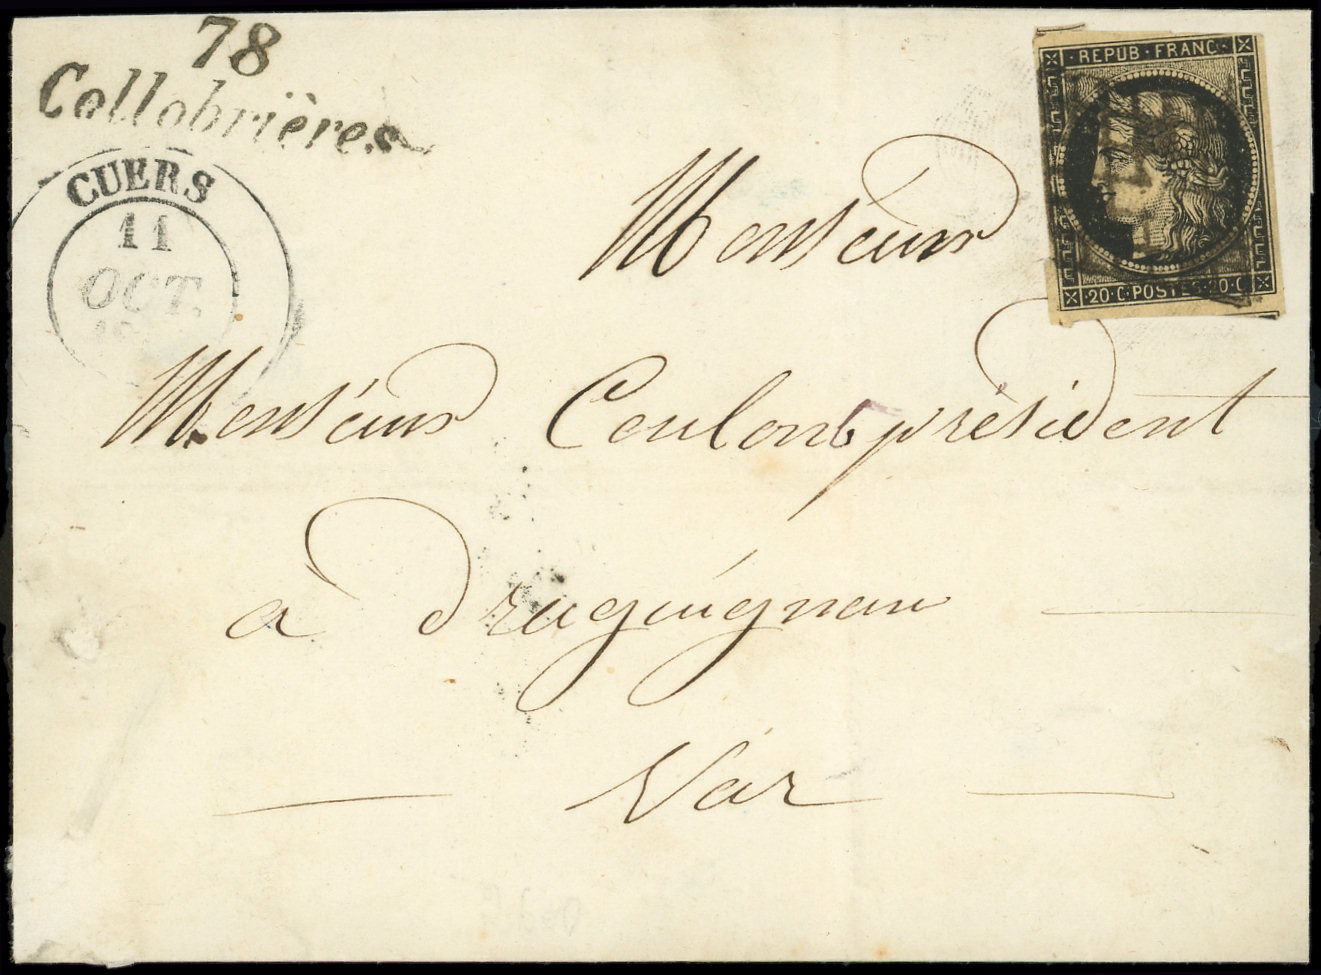 78
Collobrières
CUERS
11
OCT.
REPUB·FRANC·
20·C·POSTES·20·C
Monsieur
Monsieur Coulomb président
a Draguignan
Var